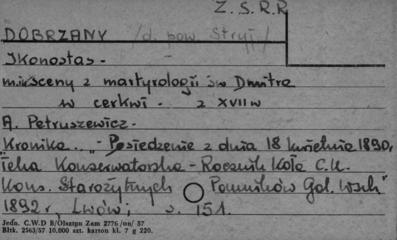 Z.S.R.R
DOBRZANY /d. pow Stryj/
Ikonostas -
sceny z martyrologii św Dmitra
w cerkwi - z XVII w
A. Petruszewicz -
"Kronika.." - Posiedzenie z dnia 18 kwietnia 1890r
Teka Konserwatorska - Rocznik Koła C.K.
Kons. Starożytnych Pomników Gal. Wsch"
1892r Lwów; s. 151.
Jedn. C.W.D B/Olsztyn Zam 2776/on/57
Bltk. 2563/57 10.000 szt. karton kl. 7 g 220.